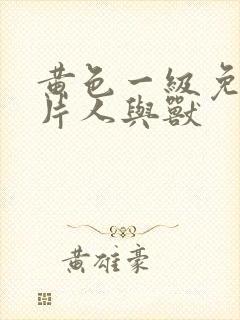 黄色一級免
片人與獸
黃雄豪